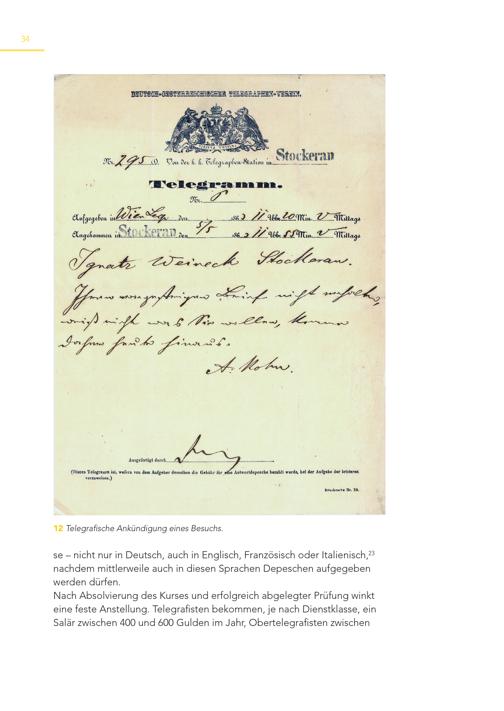 34
DEUTSCH-OESTERREICHISCHER TELEGRAPHEN-VEREIN.
Nr. 295 Von der k. k. Telegraphen-Station in Stockerau
Telegramm.
Nr.
Aufgegeben in Wien den 186 11 Uhr 20 Min. V Mittags
Angekommen in Stockerau den 5/5 186 11 Uhr 55 Min. V Mittags
Ignatz Weineck Stockerau.
Ihren vorgestrigen Brief nicht erhalten,
weiß nicht was Sie wollen, komme
daher heute hinaus.
A. Kohn.
Ausgefertigt durch
(Dieses Telegramm ist, wofern von dem Aufgeber desselben die Gebühr für eine Antwortdepesche bezahlt wurde, bei der Aufgabe der letzteren
vorzuweisen.)
Drucksorte Nr. 28.
12 Telegrafische Ankündigung eines Besuchs.
se – nicht nur in Deutsch, auch in Englisch, Französisch oder Italienisch,23
nachdem mittlerweile auch in diesen Sprachen Depeschen aufgegeben
werden dürfen.
Nach Absolvierung des Kurses und erfolgreich abgelegter Prüfung winkt
eine feste Anstellung. Telegrafisten bekommen, je nach Dienstklasse, ein
Salär zwischen 400 und 600 Gulden im Jahr, Obertelegrafisten zwischen